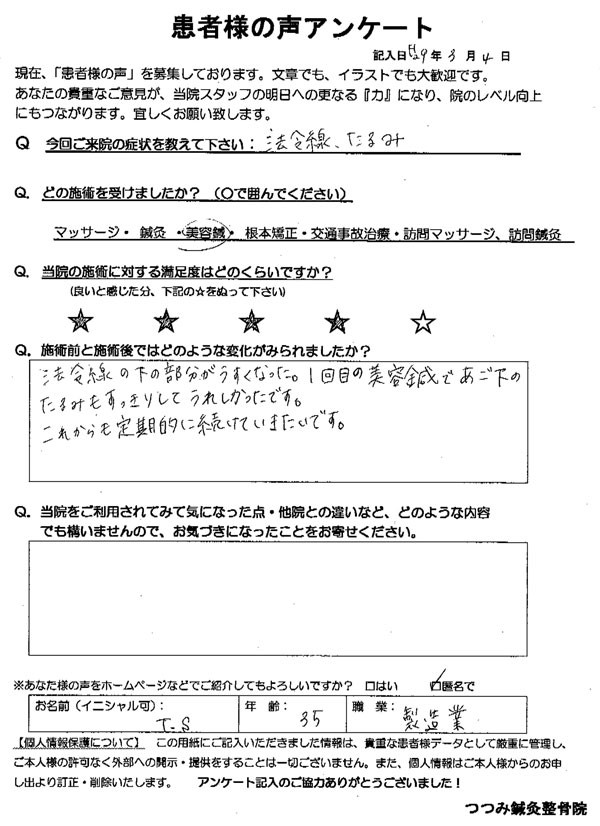 患者様の声アンケート
記入日H29年 3月 4日
現在、「患者様の声」を募集しております。文章でも、イラストでも大歓迎です。
あなたの貴重なご意見が、当院スタッフの明日への更なる『力』になり、院のレベル向上
にもつながります。宜しくお願い致します。
Q 今回ご来院の症状を教えて下さい：法令線、たるみ
Q. どの施術を受けましたか？（〇で囲んでください）
マッサージ・ 鍼灸 ・美容鍼・ 根本矯正・交通事故治療・訪問マッサージ、訪問鍼灸
Q. 当院の施術に対する満足度はどのくらいですか？
（良いと感じた分、下記の☆をぬって下さい）
★ ★ ★ ★ ☆
Q. 施術前と施術後ではどのような変化がみられましたか？
法令線の下の部分がうすくなった。1回目の美容鍼であご下の
たるみもすっきりしてうれしかったです。
これからも定期的に続けていきたいです。
Q. 当院をご利用されてみて気になった点・他院との違いなど、どのような内容
でも構いませんので、お気づきになったことをお寄せください。
※あなた様の声をホームページなどでご紹介してもよろしいですか？ □はい ☑匿名で
お名前（イニシャル可）： T.S 年 齢： 35 職 業： 製造業
【個人情報保護について】 この用紙にご記入いただきました情報は、貴重な患者様データとして厳重に管理し、
ご本人様の許可なく外部への開示・提供をすることは一切ございません。また、個人情報はご本人様からのお申
し出より訂正・削除いたします。 アンケート記入のご協力ありがとうございました！
つつみ鍼灸整骨院